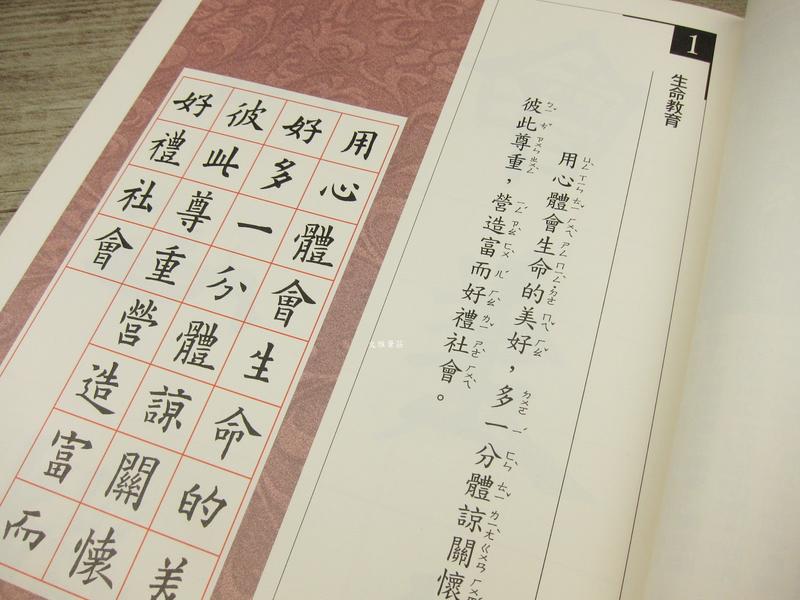 1
生命教育
用心體會生命的美好，多一分體諒關懷
彼此尊重，營造富而好禮社會。
用心體會生命的美
好多一分體諒關懷
彼此尊重營造富而
好禮社會